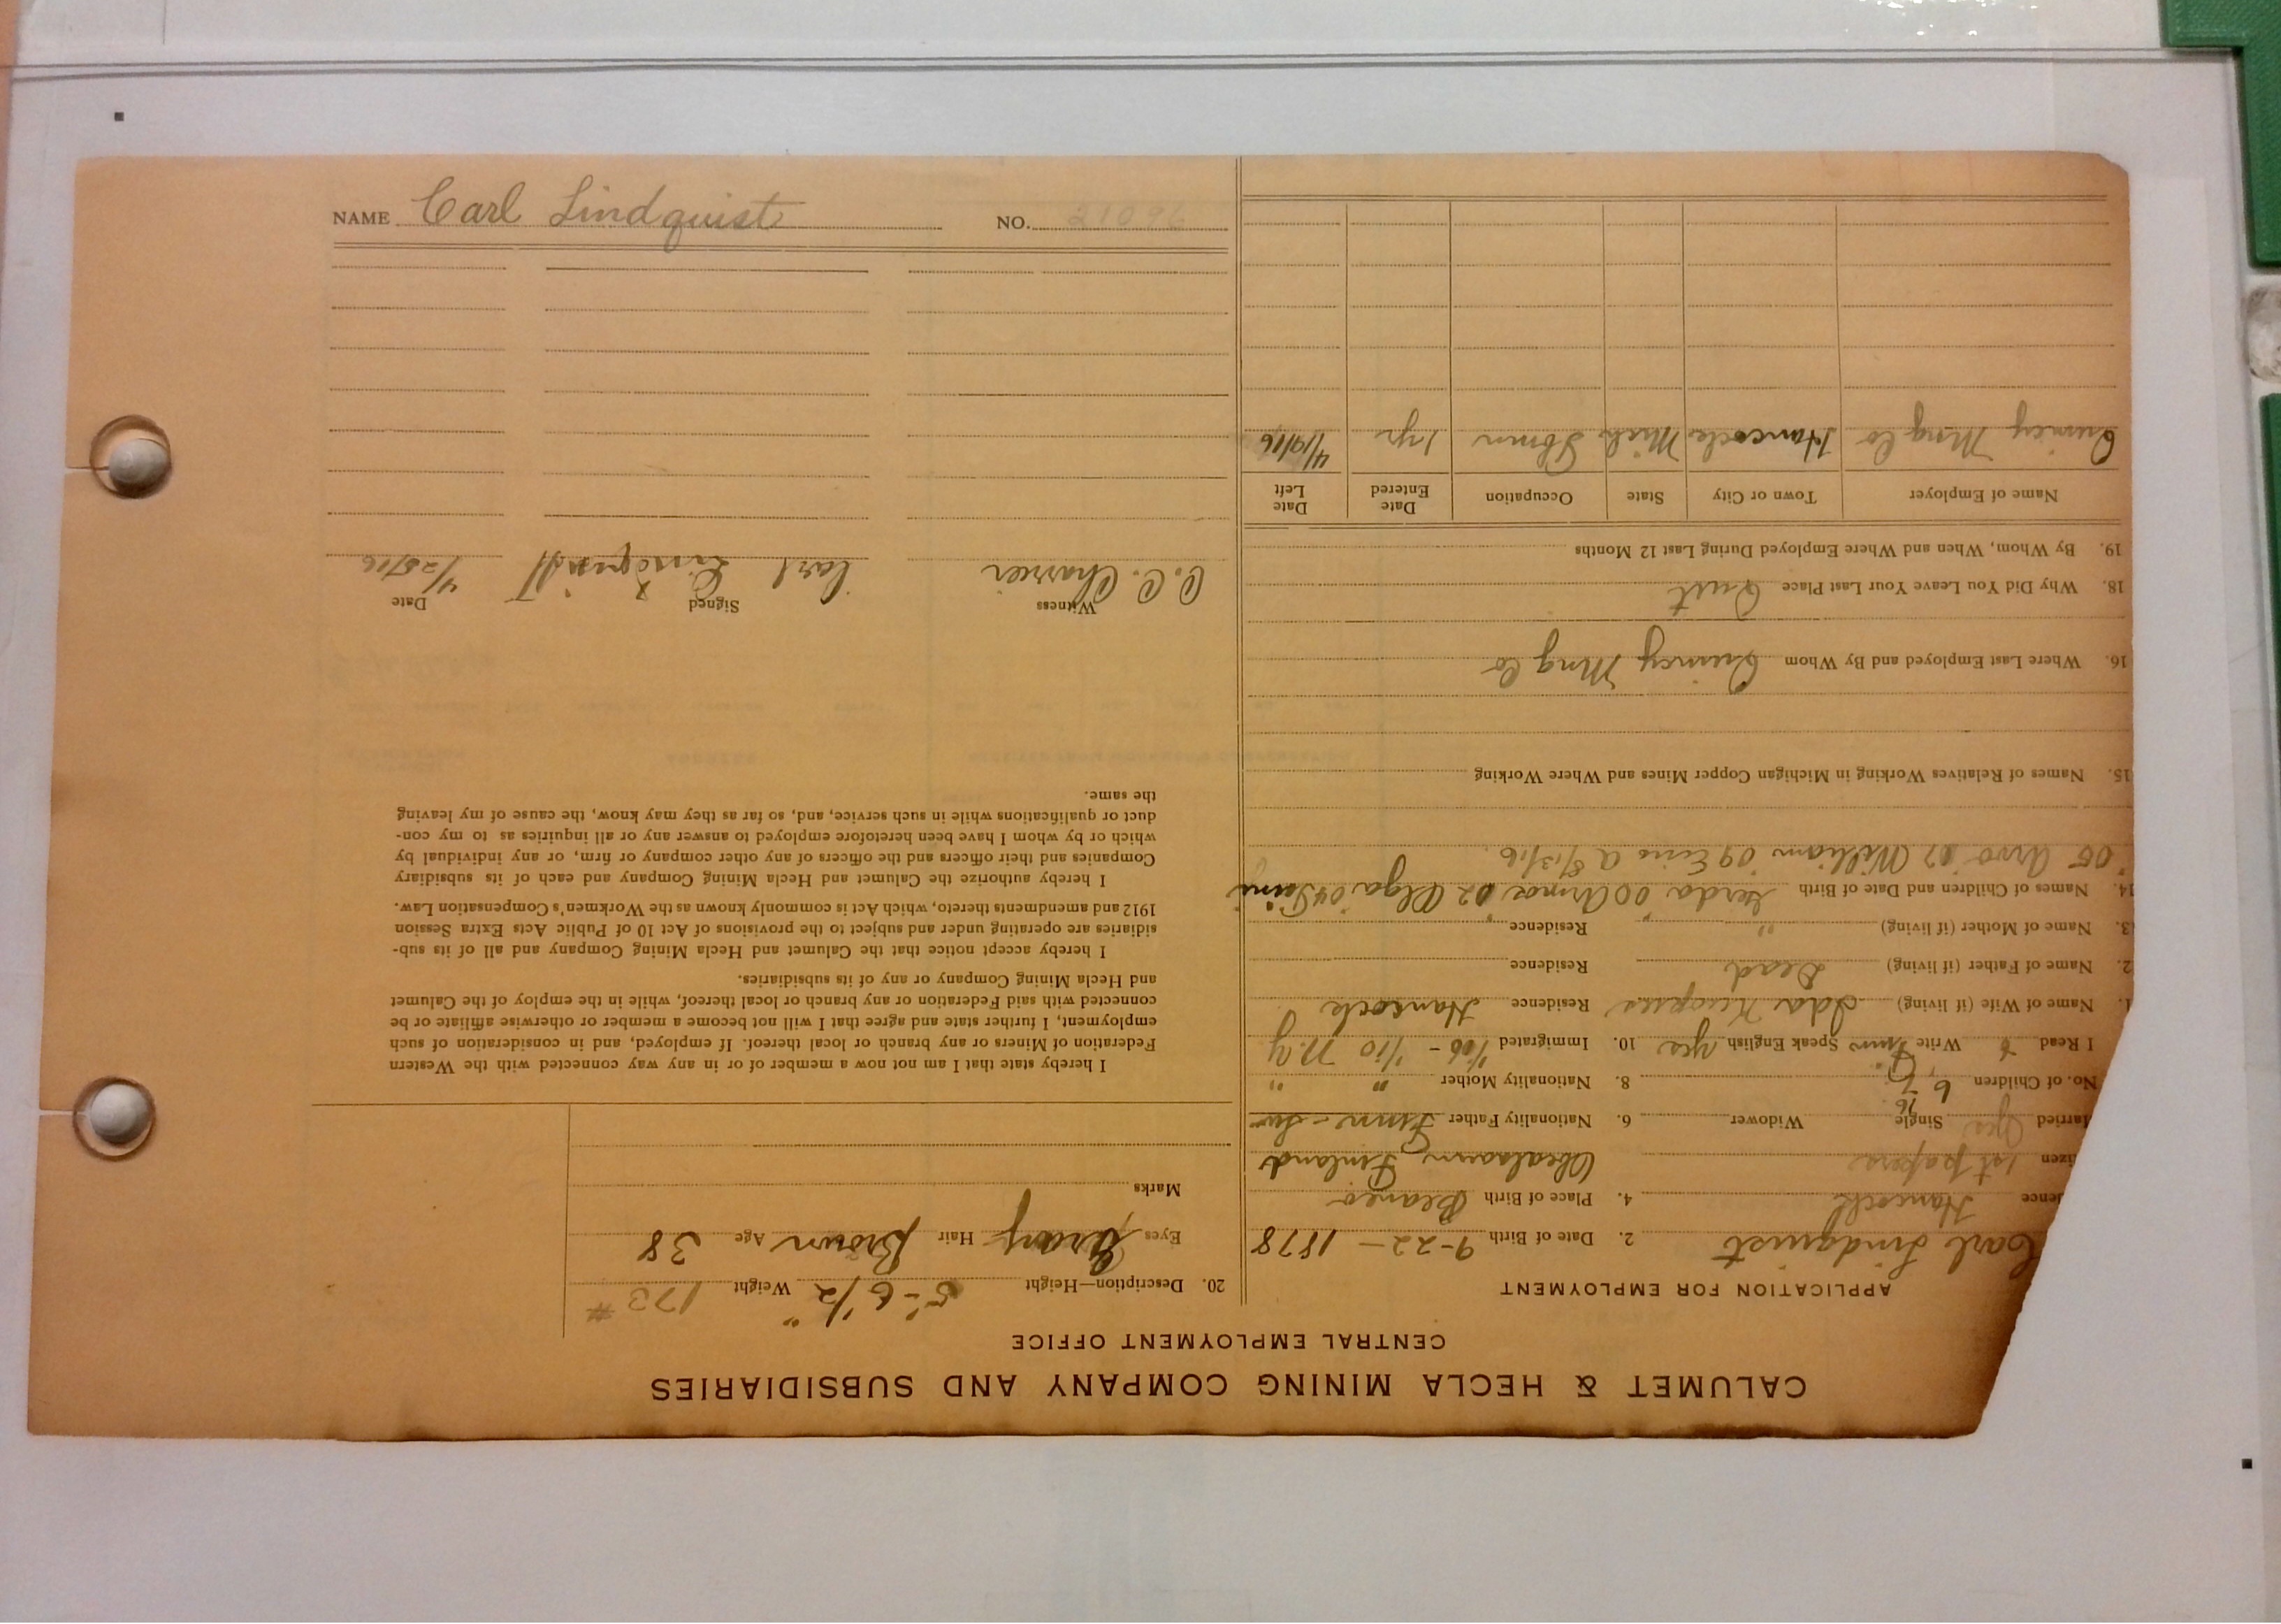 NAME Carl Lindquist NO. 21096
CALUMET & HECLA MINING COMPANY AND SUBSIDIARIES
CENTRAL EMPLOYMENT OFFICE
APPLICATION FOR EMPLOYMENT
Carl Lindquist 2. Date of Birth 9-22-1878
dence Hancock 4. Place of Birth
izen 1st papers Finland
arried yes Single Widower 6. Nationality Father Finn - Sw
No. of Children 6 8. Nationality Mother " "
I Read Write Finn Speak English yes 10. Immigrated 1/06 - 1/10 N.Y
1. Name of Wife (if living) Ida Residence Hancock
2. Name of Father (if living) Dead Residence
3. Name of Mother (if living) " Residence "
14. Names of Children and Date of Birth Gerda '00 '02 Olga '04
'05 Arvo '07 William '09 a 8/13/16.
15. Names of Relatives Working in Michigan Copper Mines and Where Working
16. Where Last Employed and By Whom Quincy Mng Co
18. Why Did You Leave Your Last Place Quit
19. By Whom, When and Where Employed During Last 12 Months
Name of Employer Town or City State Occupation Date Entered Date Left
Quincy Mng Co Hancock Mich 1 yr 4/19/16
20. Description—Height 5'-6 1/2" Weight 173 #
Eyes Gray Hair Brown Age 38
Marks
I hereby state that I am not now a member of or in any way connected with the Western
Federation of Miners or any branch or local thereof. If employed, and in consideration of such
employment, I further state and agree that I will not become a member or otherwise affiliate or be
connected with said Federation or any branch or local thereof, while in the employ of the Calumet
and Hecla Mining Company or any of its subsidiaries.
I hereby accept notice that the Calumet and Hecla Mining Company and all of its sub-
sidiaries are operating under and subject to the provisions of Act 10 of Public Acts Extra Session
1912 and amendments thereto, which Act is commonly known as the Workmen's Compensation Law.
I hereby authorize the Calumet and Hecla Mining Company and each of its subsidiary
Companies and their officers and the officers of any other company or firm, or any individual by
which or by whom I have been heretofore employed to answer any or all inquiries as to my con-
duct or qualifications while in such service, and, so far as they may know, the cause of my leaving
the same.
Witness Signed Date
C. C. Carl Lindquist 4/25/16